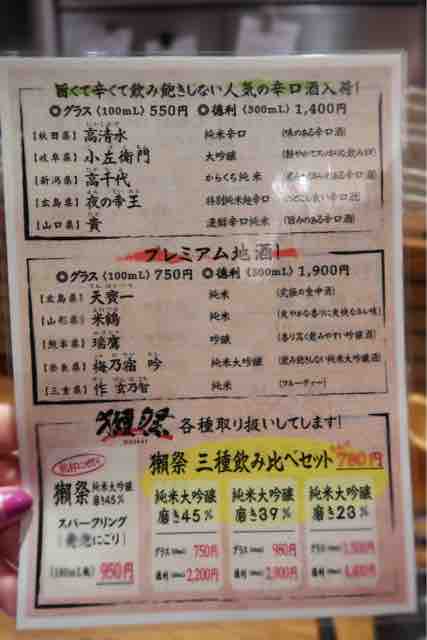 旨くて辛くて飲み飽きしない人気の辛口酒入荷!
◎グラス(100mL) 550円 ◎徳利(300mL) 1,400円
【秋田県】 高清水 純米辛口 (味のある辛口酒)
【岐阜県】 小左衛門 大吟醸
【新潟県】 高千代 からくち純米
【広島県】 夜の帝王 特別純米超辛口
【山口県】 貴 濃醇辛口純米 (旨みのある辛口酒)
プレミアム地酒!
◎グラス(100mL) 750円 ◎徳利(300mL) 1,900円
【広島県】 天寶一 純米 (究極の食中酒)
【山形県】 米鶴 純米
【熊本県】 瑞鷹 吟醸 (香り高く飲みやすい吟醸酒)
【奈良県】 梅乃宿 吟 純米大吟醸 (飲み飽きしない純米大吟醸酒)
【三重県】 作 玄乃智 純米 (フルーティー)
獺祭 各種取り扱いしてます!
獺祭 三種飲み比べセット 780円
獺祭 純米大吟醸
磨き45%
スパークリング
(発泡にごり)
(180mL瓶) 950円
純米大吟醸
磨き45%
グラス 750円
徳利 2,200円
純米大吟醸
磨き39%
グラス 980円
徳利 2,900円
純米大吟醸
磨き23%
グラス 1,500円
徳利 4,400円